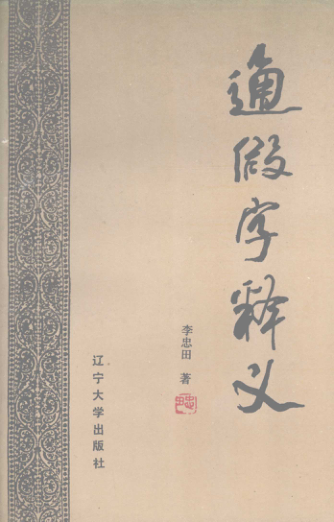 通假字释义
李忠田 著
辽宁大学出版社